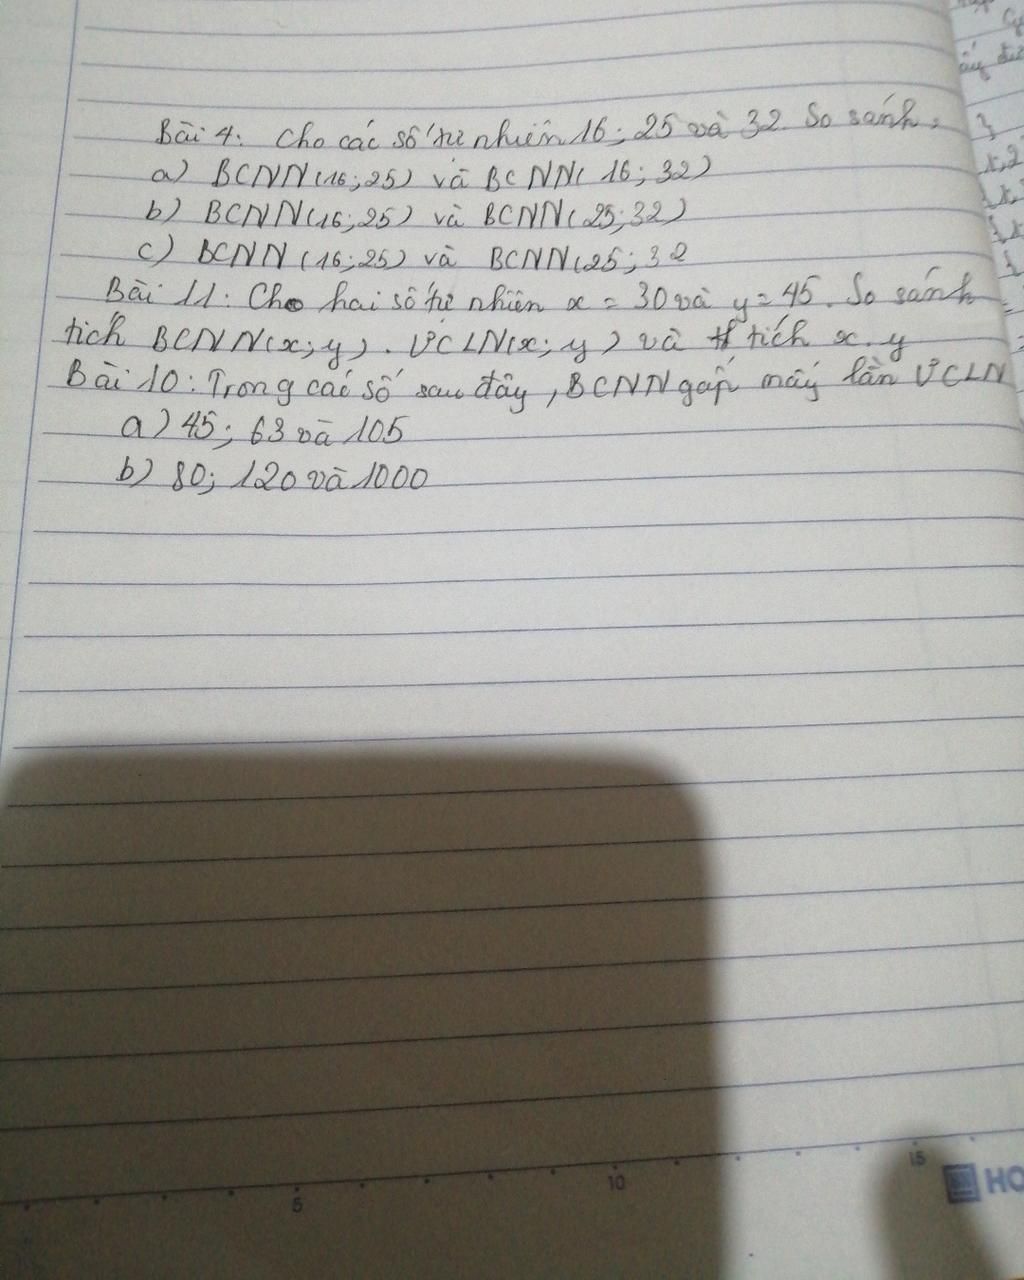 Bài 4: Cho các số tự nhiên 16; 25 và 32. So sánh:
a) BCNN(16;25) và BCNN( 16; 32)
b) BCNN(16;25) và BCNN(25;32)
c) BCNN (16;25) và BCNN(25; 32
Bài 11: Cho hai số tự nhiên x = 30 và y = 45. So sánh
tích BCNN(x; y). ƯCLN(x; y) và tích x. y
Bài 10: Trong các số sau đây, BCNN gấp mấy lần ƯCLN
a) 45; 63 và 105
b) 80; 120 và 1000
5 10 15
HO